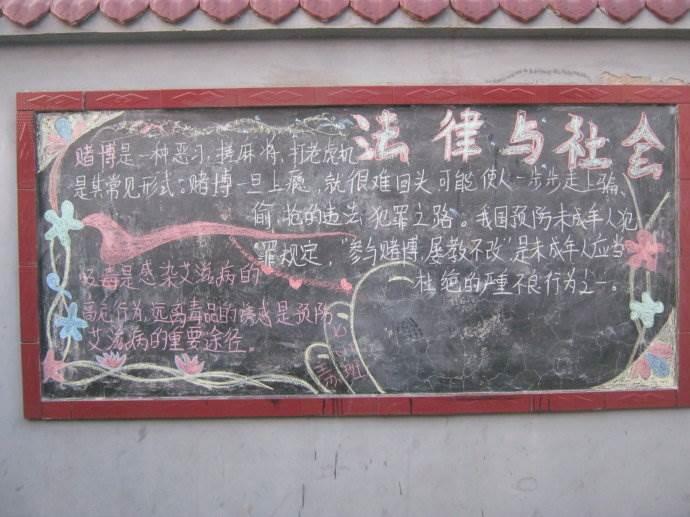 法律与社会
赌博是一种恶习,搓麻将,打老虎机
是其常见形式。赌博一旦上瘾,就很难回头,可能使人一步步走上骗、
偷、抢的违法犯罪之路。我国预防未成年人犯
罪规定,"参与赌博,屡教不改"是未成年人应当
杜绝的严重不良行为之一。
吸毒是感染艾滋病的
高危行为,远离毒品的诱惑是预防
艾滋病的重要途径。